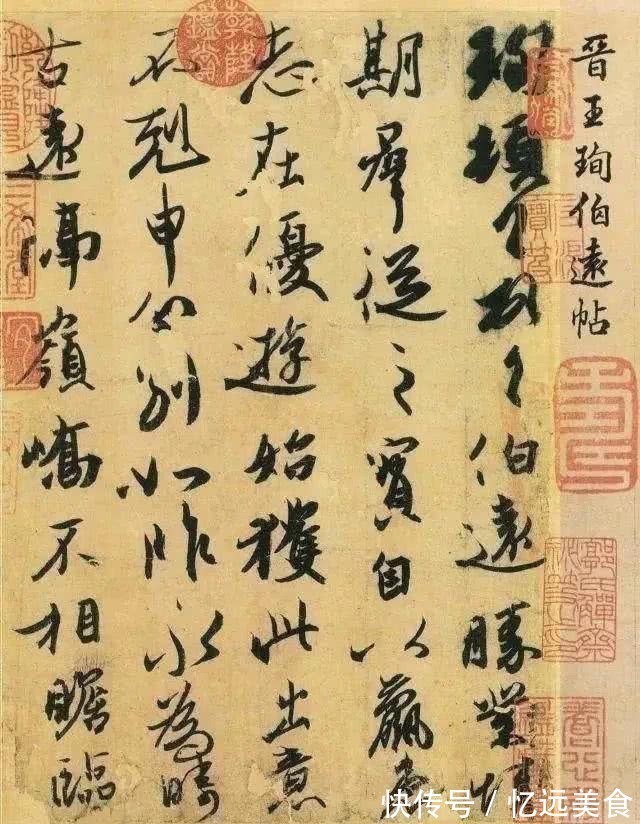 晉王珣伯遠帖
珣頓首頓首伯遠勝業情
期羣從之寶自以羸患
志在優遊始獲此出意
不剋申分別如昨永為疇
古遠隔嶺嶠不相瞻臨
乾隆鑑賞
快传号／忆远美食